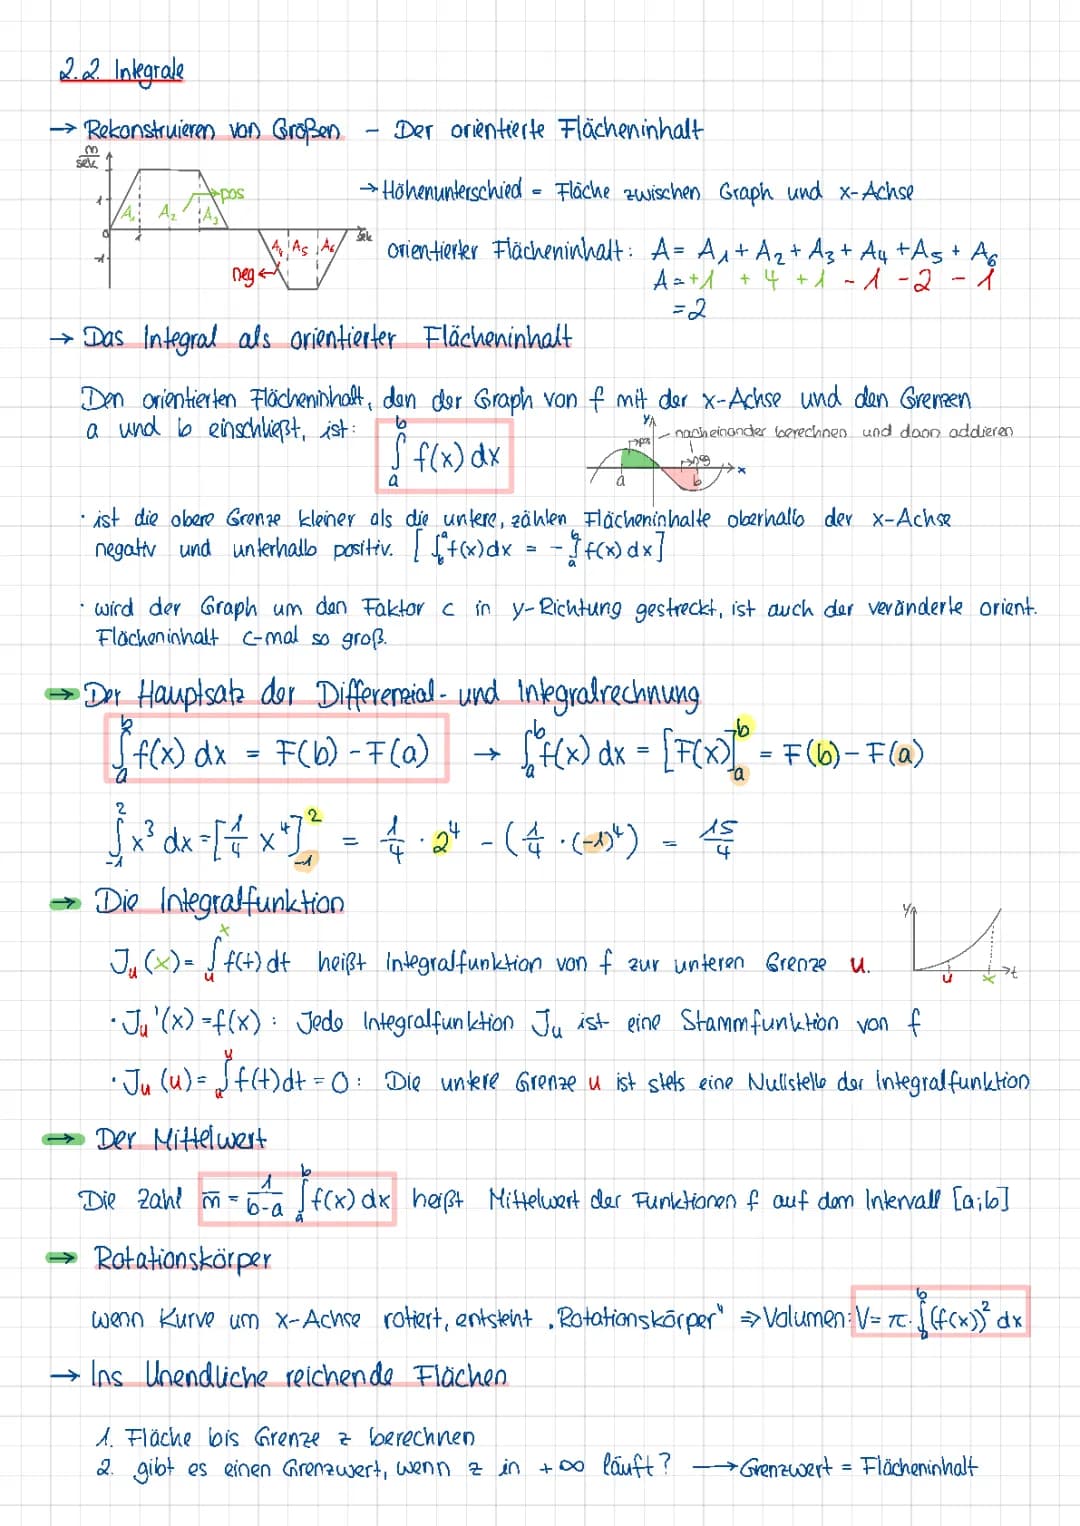 2.2. Integrale
→ Rekonstruieren von Größen - Der orientierte Flächeninhalt
m/sek
1
0
1
-1
A₁ A₂ A₃
pos
A₄ A₅ A₆
neg
sek
→ Höhenunterschied = Fläche zwischen Graph und x-Achse
orientierter Flächeninhalt: A = A₁ + A₂ + A₃ + A₄ + A₅ + A₆
A = +1 + 4 + 1 - 1 - 2 - 1
= 2
→ Das Integral als orientierter Flächeninhalt
Den orientierten Flächeninhalt, den der Graph von f mit der x-Achse und den Grenzen
a und b einschließt, ist: ∫ₐᵇ f(x) dx
y
pos
nacheinander berechnen und dann addieren
neg
a b x
· ist die obere Grenze kleiner als die untere, zählen Flächeninhalte oberhalb der x-Achse
negativ und unterhalb positiv. [ ∫_b^a f(x) dx = - ∫_a^b f(x) dx ]
· wird der Graph um den Faktor c in y-Richtung gestreckt, ist auch der veränderte orient.
Flächeninhalt c-mal so groß.
→ Der Hauptsatz der Differenzial- und Integralrechnung
∫_a^b f(x) dx = F(b) - F(a) → ∫_a^b f(x) dx = [F(x)]_a^b = F(b) - F(a)
∫_-1^2 x³ dx = [1/4 x⁴]_-1^2 = 1/4 · 2⁴ - (1/4 · (-1)⁴) = 15/4
→ Die Integralfunktion
J_u (x) = ∫_u^x f(t) dt heißt Integralfunktion von f zur unteren Grenze u.
y
u x t
· J_u'(x) = f(x) : Jede Integralfunktion J_u ist eine Stammfunktion von f
· J_u (u) = ∫_u^u f(t) dt = 0 : Die untere Grenze u ist stets eine Nullstelle der Integralfunktion
→ Der Mittelwert
Die Zahl m̄ = 1/(b-a) ∫_a^b f(x) dx heißt Mittelwert der Funktionen f auf dem Intervall [a;b]
→ Rotationskörper
wenn Kurve um x-Achse rotiert, entsteht „Rotationskörper" ⇒ Volumen: V = π · ∫_b^b (f(x))² dx
→ Ins Unendliche reichende Flächen
1. Fläche bis Grenze z berechnen
2. gibt es einen Grenzwert, wenn z in +∞ läuft? → Grenzwert = Flächeninhalt